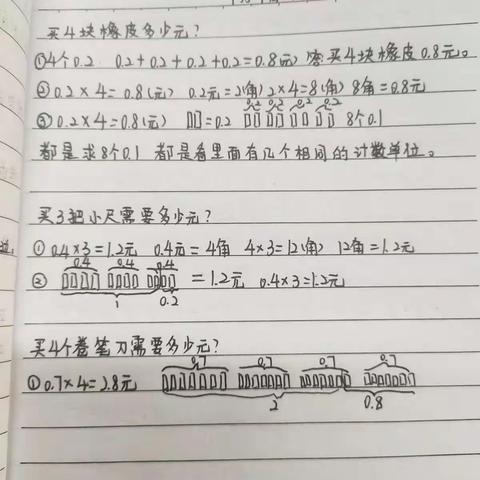 买4块橡皮多少元?
①4个0.2 0.2+0.2+0.2+0.2=0.8(元) 答买4块橡皮0.8元。
②0.2×4=0.8(元) 0.2元=2(角) 2×4=8(角) 8角=0.8元
0.2 0.2 0.2 0.2
③0.2×4=0.8(元) =0.2 8个0.1
都是求8个0.1 都是看里面有几个相同的计数单位。
买3把小尺需要多少元?
①0.4×3=1.2元 0.4元=4角 4×3=12(角) 12角=1.2元
0.4 0.4 0.4
② =1.2元 0.4×3=1.2元
1 0.2
买4个卷笔刀需要多少元?
0.7 0.7 0.7 0.7
①0.7×4=2.8元
2 0.8